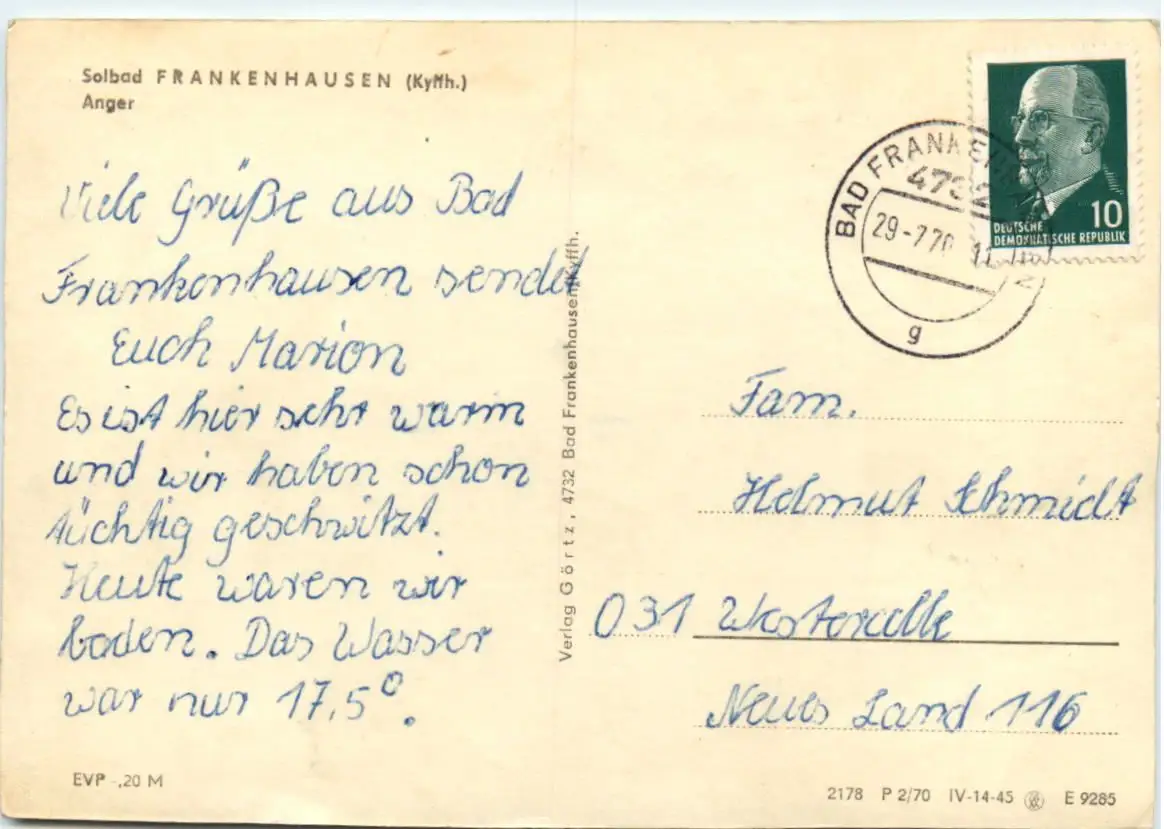 Solbad FRANKENHAUSEN (Kyffh.)
Anger
Viele Grüße aus Bad
Frankenhausen sendet
Euch Marion
Es ist hier sehr warm
und wir haben schon
tüchtig geschwitzt.
Heute waren wir
baden. Das Wasser
war nur 17,5°.
EVP -,20 M
Verlag Görtz, 4732 Bad Frankenhausen/Kyffh.
BAD FRANKENH
4732
29-7.70
g
10
DEUTSCHE
DEMOKRATISCHE REPUBLIK
Fam.
Helmut Schmidt
031 Westercelle
Neues Land 116
2178 P 2/70 IV-14-45 E 9285